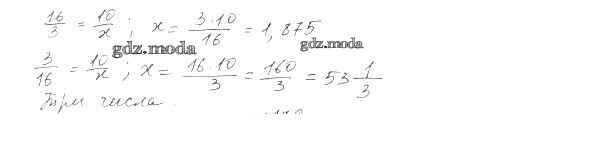 16/3 = 10/x ; x = 3·10/16 = 1,875
gdz.moda
gdz.moda
3/16 = 10/x ; x = 16·10/3 = 160/3 = 53 1/3
Три числа.